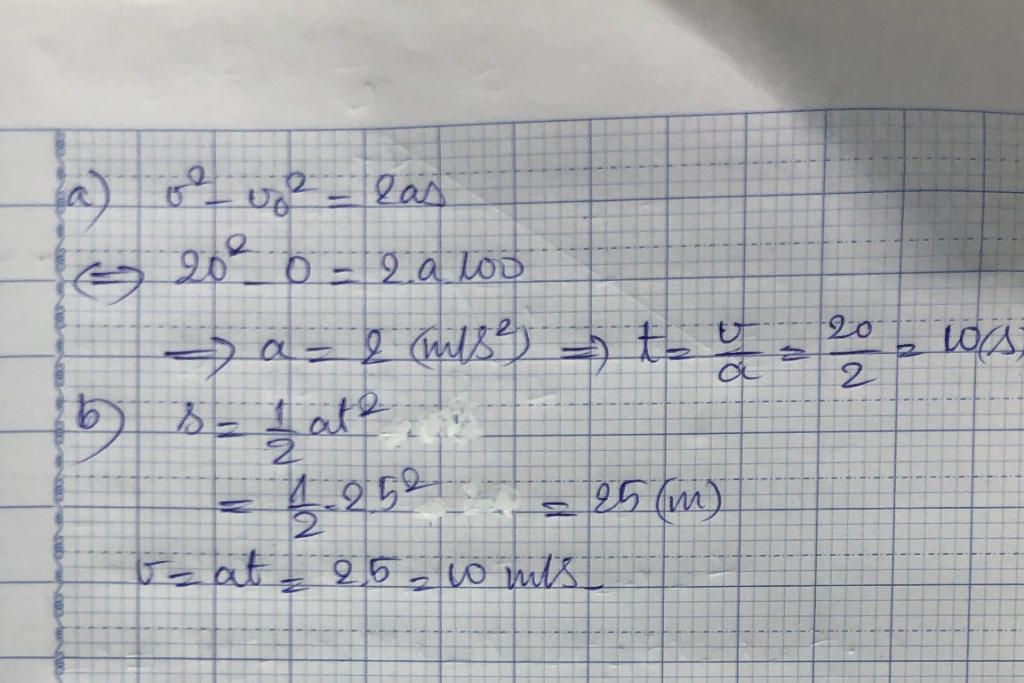 a) v² - v₀² = 2as
⇔ 20² - 0 = 2.a.100
⇒ a = 2 (m/s²) ⇒ t = v/a = 20/2 = 10(s)
b) s = 1/2 at²
= 1/2 . 2.5² = 25 (m)
v = at = 2.5 = 10 m/s